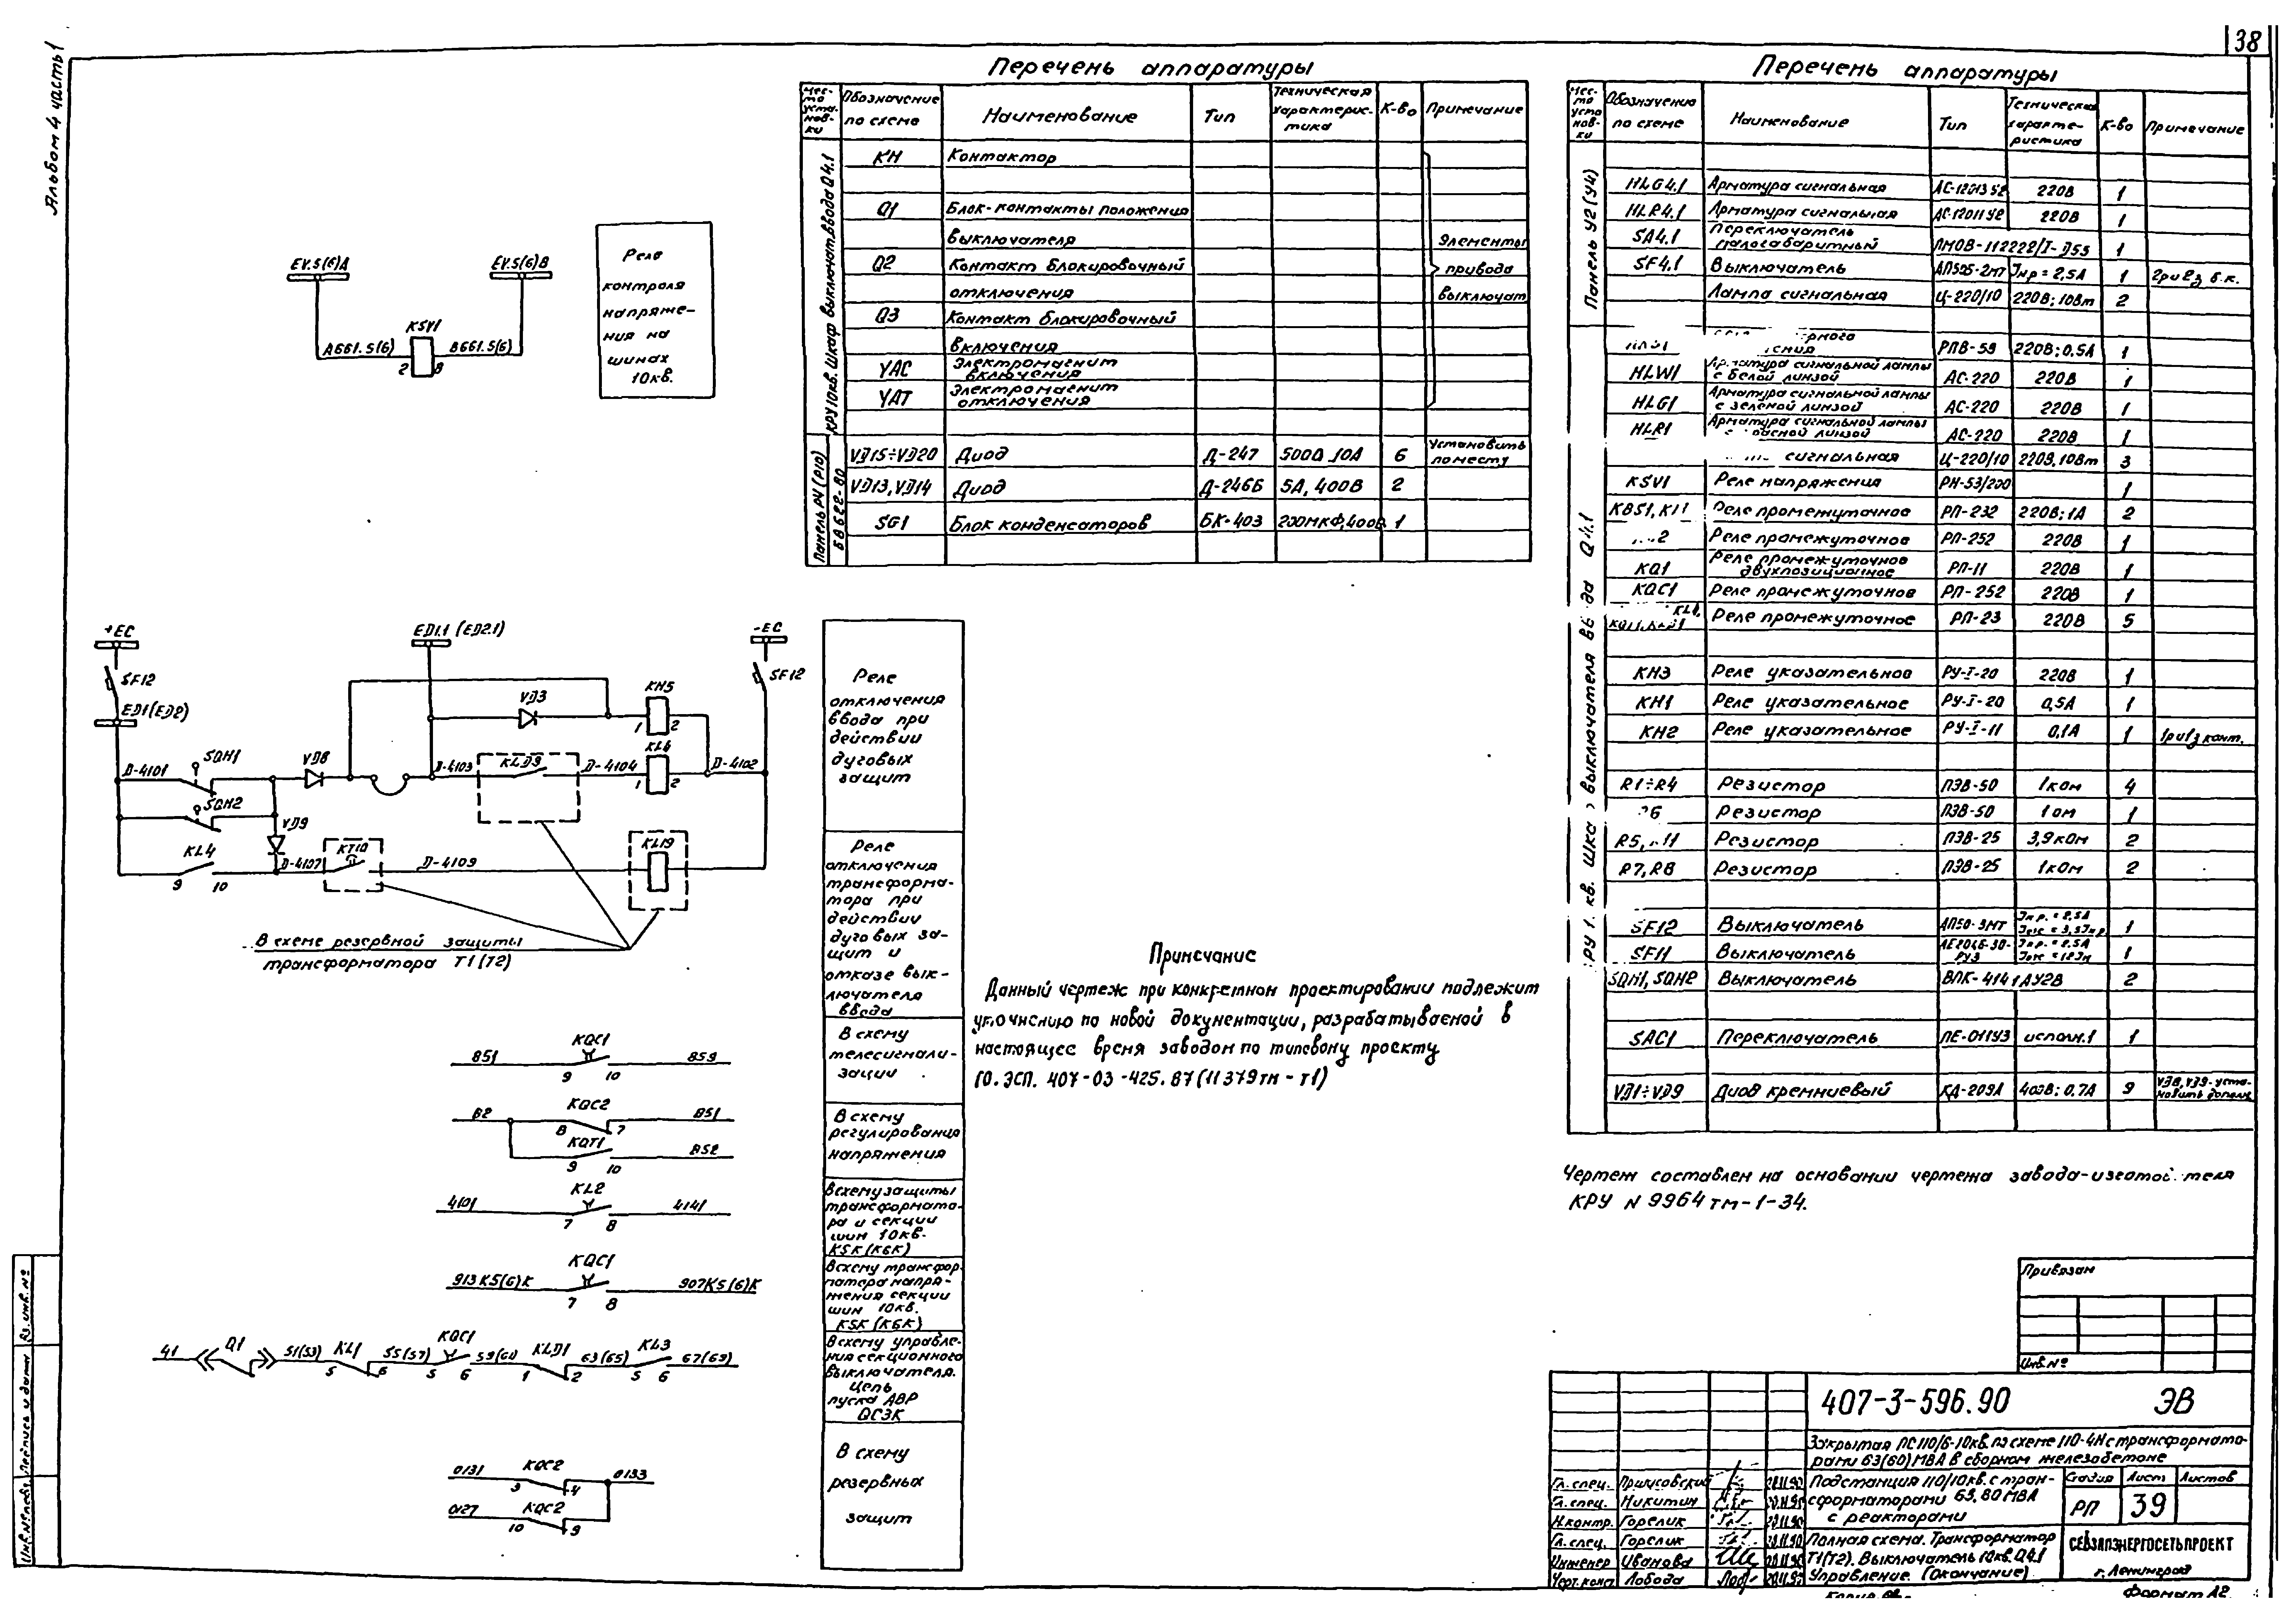 38
Альбом 4 часть 1
Перечень аппаратуры
Место установки
Обозначение по схеме
Наименование
Тип
Техническая характеристика
К-во
Примечание
КРУ 10кв. Шкаф выключат. ввода Q4.1
KH Контактор
Q1 Блок-контакты положения
выключателя
Q2 Контакт блокировочный
отключения
Q3 Контакт блокировочный
включения
YAC Электромагнит включения
YAT Электромагнит отключения
Элементы
привода
выключат
Панель Р4 (Р10)
VD15÷VD20 Диод Д-247 500В 10А 6 Установить по месту
VD13, VD14 Диод Д-246Б 5А, 400В 2
SG1 Блок конденсаторов БК-403 200мкФ, 400В 1
Перечень аппаратуры
Место установки
Обозначение по схеме
Наименование
Тип
Техническая характеристика
К-во
Примечание
Панель У2 (У4)
HLG4.1 Арматура сигнальная АС-12013У2 220В 1
HLR4.1 Арматура сигнальная АС-12011У2 220В 1
SA4.1 Переключатель малогабаритный ПМОВ-112222/I-Д55 1
SF4.1 Выключатель Iнр = 2,5А 1 2р и 2з б.к.
Лампа сигнальная Ц-220/10 220В; 10Вт 2
РПВ-58 220В; 0,5А 1
HLW1 Арматура сигнальной лампы с белой линзой АС-220 220В 1
HLG1 Арматура сигнальной лампы с зеленой линзой АС-220 220В 1
HLR1 Арматура сигнальной лампы линзой АС-220 220В 1
сигнальная Ц-220/10 220В, 10Вт 3
KSV1 Реле напряжения РН-53/200 1
KBS1, Реле промежуточное РП-232 220В; 1А 2
Реле промежуточное РП-252 220В 1
KQ1 Реле промежуточное двухпозиционное РП-11 220В 1
KQC1 Реле промежуточное РП-252 220В 1
Реле промежуточное РП-23 220В 5
KH3 Реле указательное РУ-I-20 220В 1
KH1 Реле указательное РУ-I-20 0,5А 1
KH2 Реле указательное РУ-I-11 0,1А 1 1р и 1з конт.
R1÷R4 Резистор ПЭВ-50 1ком 4
Резистор ПЭВ-50 1 ом 1
R5, Резистор ПЭВ-25 3,9ком 2
R7, R8 Резистор ПЭВ-25 1ком 2
SF12 Выключатель АП50-3МТ 1
SF11 Выключатель АЕ2046-30-РУЗ 1
SQH1, SQH2 Выключатель ВПК-4141АУ2В 2
SAC1 Переключатель ПЕ-011У3 исполн.1 1
VD1÷VD9 Диод кремниевый КД-209А 400В; 0,7А 9
EV.5(6)A
EV.5(6)B
KSV1
A661.5(6)
B661.5(6)
2 8
Реле
контроля
напряже-
ния на
шинах
10кв.
+EC
ED1.1 (ED2.1)
-EC
SF12
SF12
ED1(ED2)
VD3
KH5
1 2
D-4101
SQH1
VD8
D-4103
KLD3
D-4104
KL6
1 2
D-4102
SQH2
VD9
KL4
9 10
D-4107
KT10
D-4109
KL19
В схеме резервной защиты
трансформатора Т1(Т2)
Реле
отключения
ввода при
действии
дуговых
защит
Реле
отключения
трансформа-
тора при
действии
дуговых за-
щит и
отказе вык-
лючателя
ввода
851
KQC1
859
9 10
В схему
телесигнали-
зации
B2
KQC2
B51
8 7
KQT1
B52
9 10
В схему
регулирования
напряжения
4101
KL2
4141
7 8
В схему защиты
трансформато-
ра и секции
шин 10кв.
K5K (K6K)
913К5(6)К
KQC1
907К5(6)К
7 8
В схему трансфор-
матора напря-
жения секции
шин 10кв.
K5K (K6K)
41
Q1
51(53)
KL1
5 6
55(57)
KQC1
5 6
59(61)
KLD1
1 2
63(65)
KL3
5 6
67(69)
В схему управле-
ния секционного
выключателя.
Цепь
пуска АВР
QC3K
0131
KQC2
0133
3 4
0127
KQC2
10 9
В схему
резервных
защит
Примечание
Данный чертеж при конкретном проектировании подлежит
уточнению по новой документации, разрабатываемой в
настоящее время заводом по типовому проекту
ГО. ЭСП. 407-03-425.87 (11379тм-т1)
Чертеж составлен на основании чертежа завода-изготовителя
КРУ N 9964тм-1-34.
Привязан
Инв.№
407-3-596.90 ЭВ
Закрытая ПС110/6-10кв. по схеме 110-4Н с трансформато-
рами 63(60)МВА в сборном железобетоне
Подстанция 110/10кв. с тран-
сформаторами 63, 80 МВА
с реакторами
Стадия Лист Листов
РП 39
Полная схема. Трансформатор
Т1(Т2). Выключатель 10кв. Q4.1
Управление. (Окончание)
СЕВЗАПЭНЕРГОСЕТЬПРОЕКТ
г. Ленинград
Гл. спец.
Гл. спец. Никитин
Н.контр. Горелик
Гл. спец. Горелик
Инженер Иванова
Черт.конст Лобода
Формат А2
Инв.№ подл. Подпись и дата Вз. инв. №